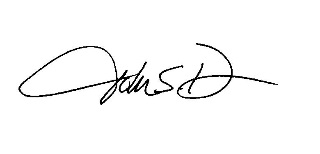 John S D